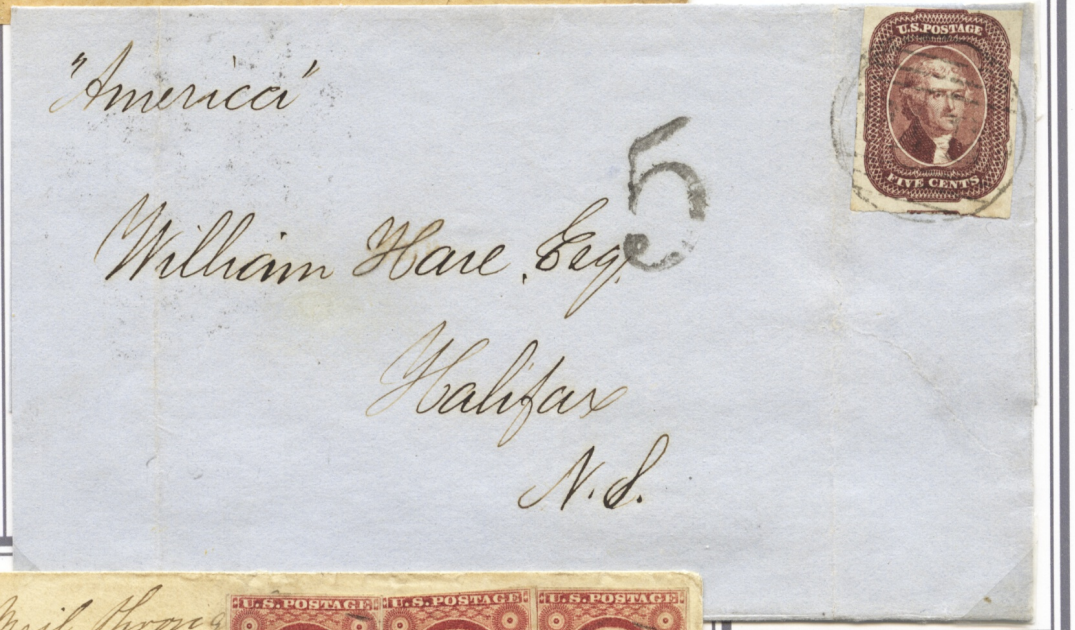 "America"
U.S. POSTAGE
FIVE CENTS
5
William Hare, Esq.
Halifax
N.S.
Mail throug
U.S. POSTAGE U.S. POSTAGE U.S. POSTAGE